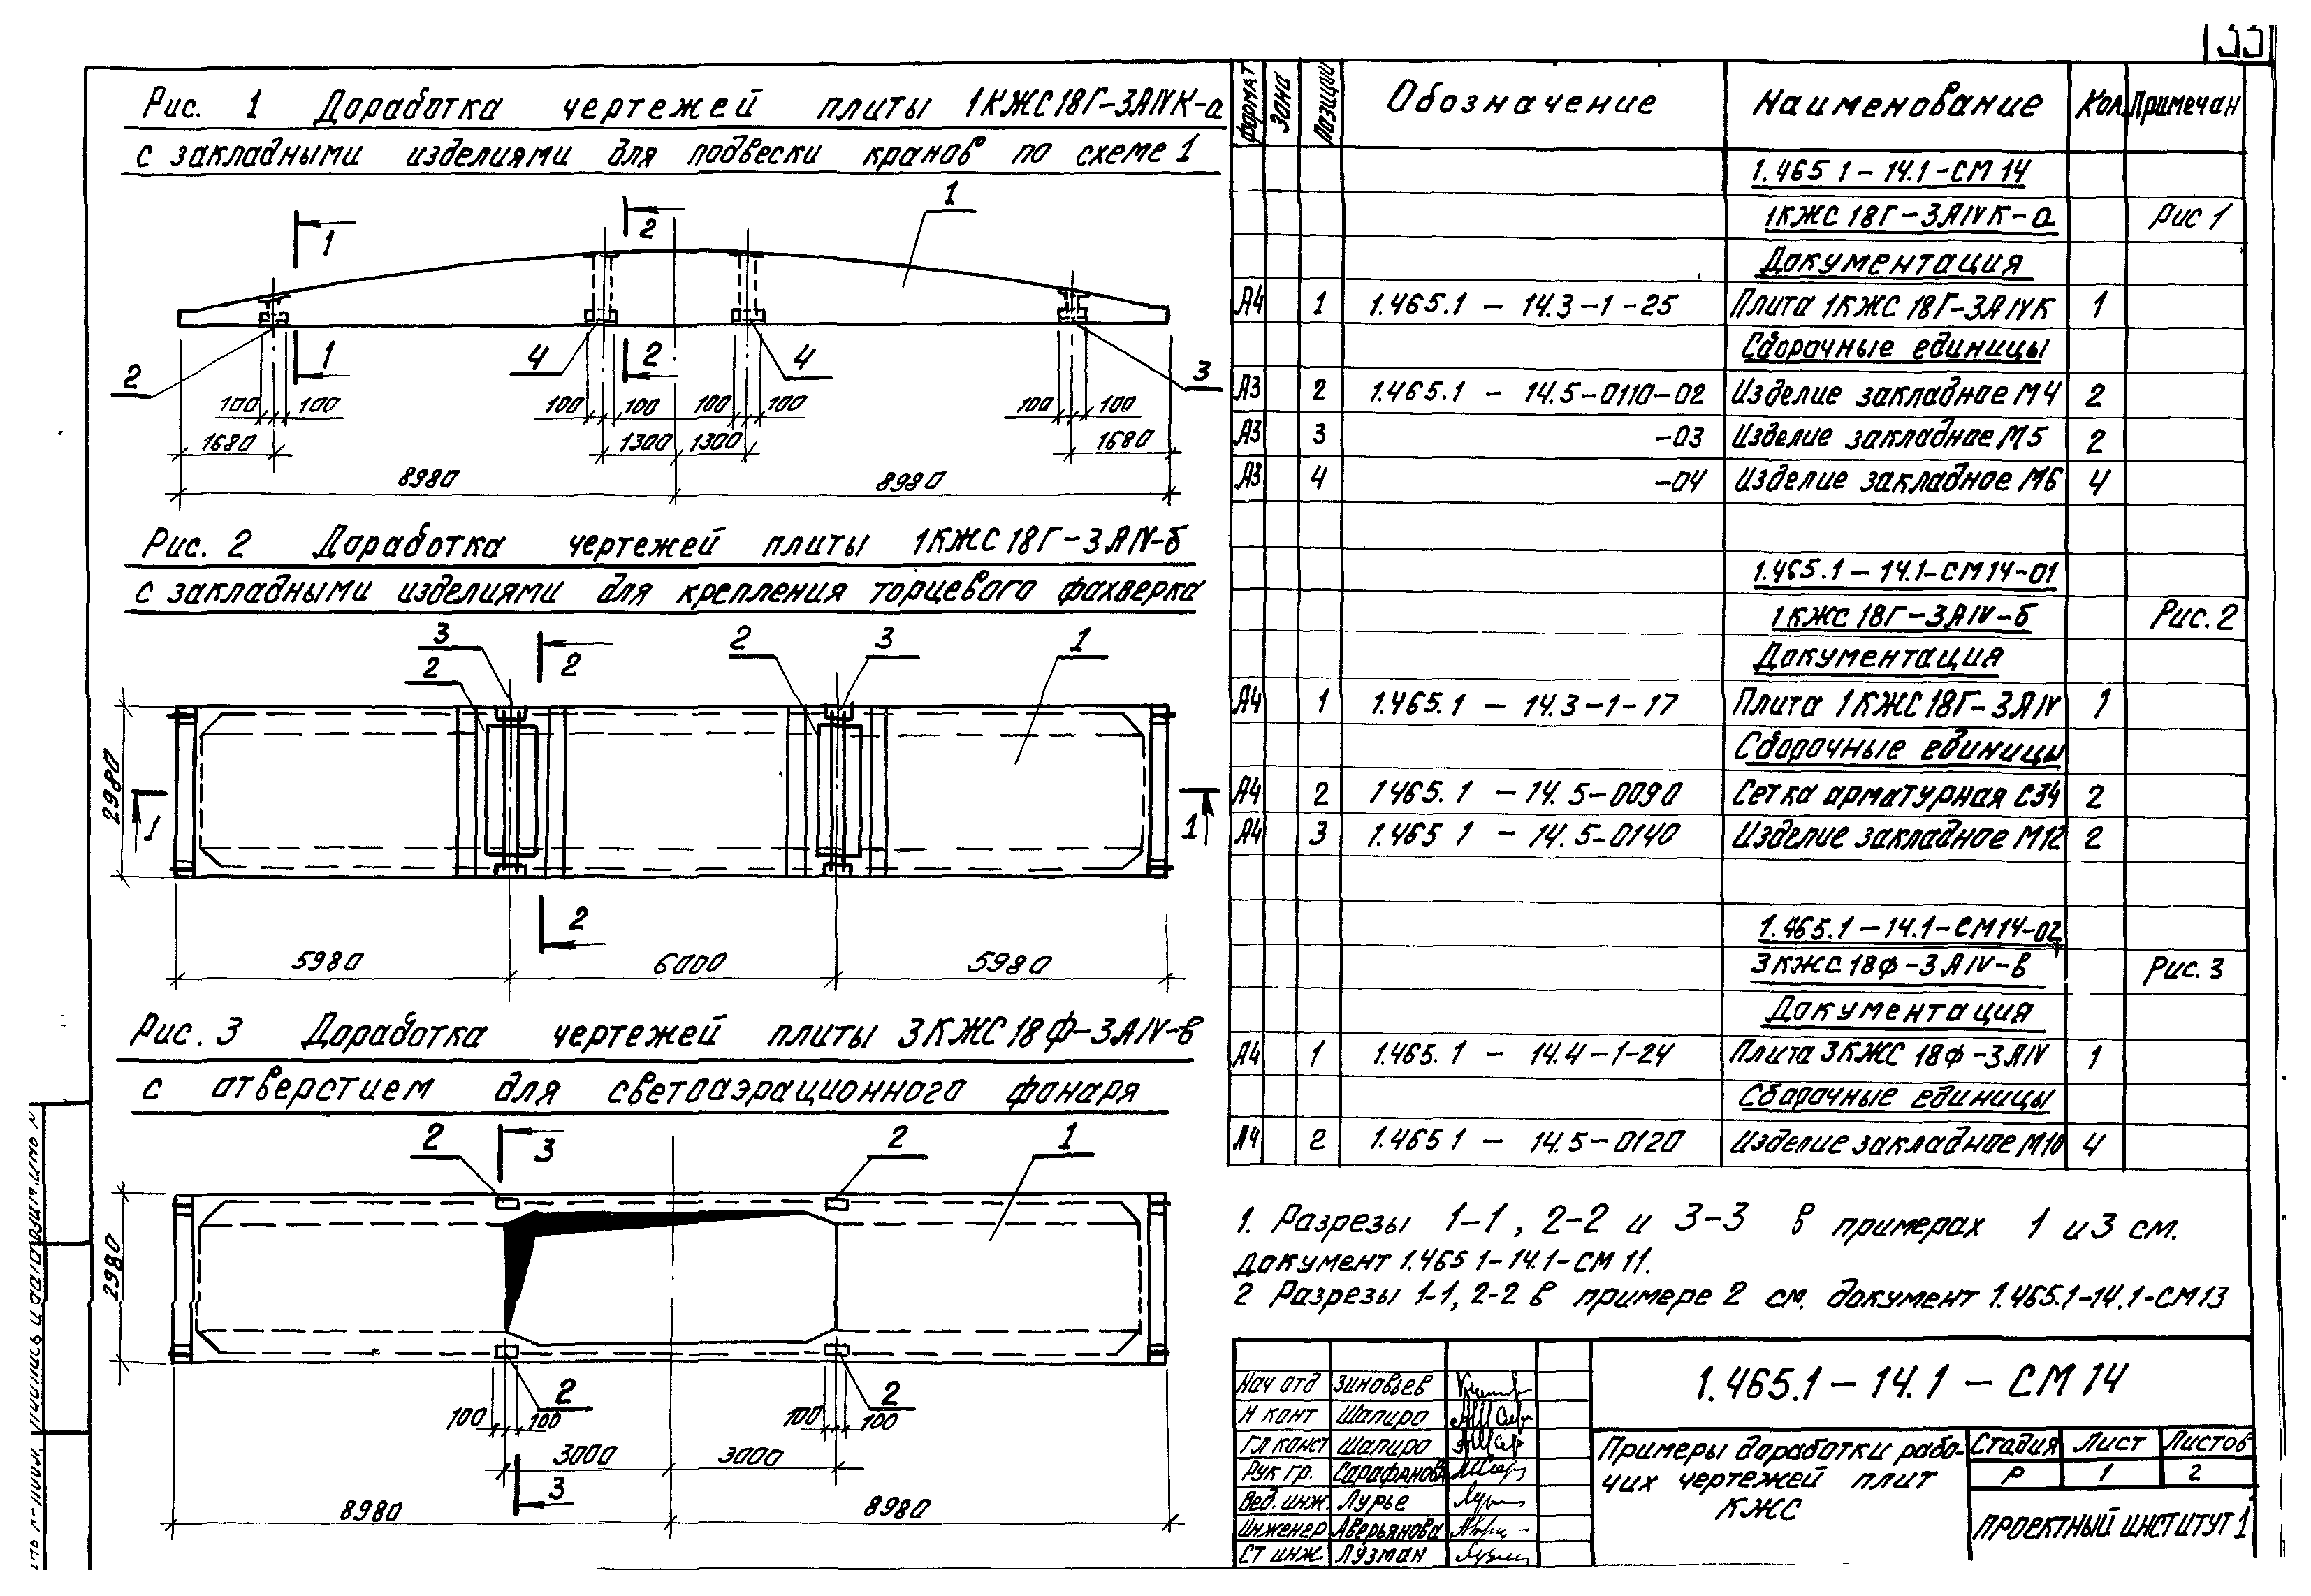 33
Рис. 1 Доработка чертежей плиты 1КЖС18Г-3АIVК-а
с закладными изделиями для подвески кранов по схеме 1
1 2 1
1 2
2 4 4 3
100 100 100 100 100 100 100 100
1680 1300 1300 1680
8980 8980
Рис. 2 Доработка чертежей плиты 1КЖС18Г-3АIV-б
с закладными изделиями для крепления торцевого фахверка
3 2 2 2 3 1
2980
1 1
2
5980 6000 5980
Рис. 3 Доработка чертежей плиты 3КЖС18Ф-3АIV-в
с отверстием для светоаэрационного фонаря
2 3 2 1
2980
2 2
100 100 100 100
3000 3000
3
8980 8980
Формат Зона Позиция Обозначение Наименование Кол. Примечан
1.465 1-14.1-СМ 14
1КЖС 18Г-3АIVК-а Рис 1
Документация
А4 1 1.465.1 - 14.3-1-25 Плита 1КЖС 18Г-3АIVК 1
Сборочные единицы
А3 2 1.465.1 - 14.5-0110-02 Изделие закладное М4 2
А3 3 -03 Изделие закладное М5 2
А3 4 -04 Изделие закладное М6 4
1.465.1-14.1-СМ14-01
1КЖС 18Г-3АIV-б Рис. 2
Документация
А4 1 1.465.1 - 14.3-1-17 Плита 1КЖС18Г-3АIV 1
Сборочные единицы
А4 2 1465.1 - 14.5-0090 Сетка арматурная С34 2
А4 3 1.465 1 - 14.5-0140 Изделие закладное М12 2
1.465.1-14.1-СМ14-02
3КЖС 18Ф-3АIV-в Рис. 3
Документация
А4 1 1.465.1 - 14.4-1-24 Плита 3КЖС 18Ф-3АIV 1
Сборочные единицы
А4 2 1.465 1 - 14.5-0120 Изделие закладное М10 4
1. Разрезы 1-1, 2-2 и 3-3 в примерах 1 и 3 см.
документ 1.465 1-14.1-СМ 11.
2 Разрезы 1-1, 2-2 в примере 2 см. документ 1.465.1-14.1-СМ13
Нач отд Зиновьев
Н конт Шапиро
Гл конст Шапиро
Рук гр. Сарафанова
Вед. инж Лурье
Инженер Аверьянова
Ст инж. Лузман
1.465.1-14.1-СМ 14
Примеры доработки рабо-
чих чертежей плит
КЖС
Стадия Лист Листов
Р 1 2
ПРОЕКТНЫЙ ИНСТИТУТ 1